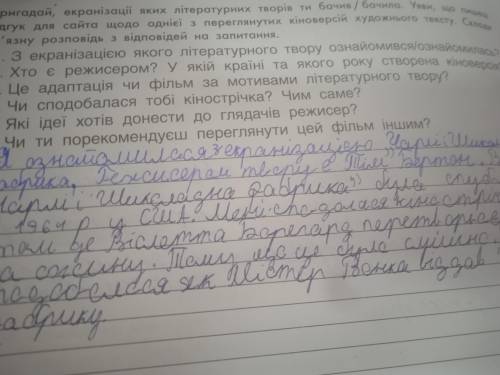 ригадай, екранізації яких літературних творів ти бачив / бачила. Уяви, що пишеш
дгук для сайта щодо однієї з переглянутих кіноверсій художнього тексту. Склади
'язну розповідь з відповідей на запитання.
. З екранізацією якого літературного твору ознайомився/ознайомилася?
. Хто є режисером? У якій країні та якого року створена кіноверсія?
. Це адаптація чи фільм за мотивами літературного твору?
Чи сподобалася тобі кінострічка? Чим саме?
Які ідеї хотів донести до глядачів режисер?
Чи ти порекомендуєш переглянути цей фільм іншим?
Я ознайомилася з екранізацією Чарлі і Шоколадна
фабрика. Режисером твору є Тім Бертон.
Чарлі і Шоколадна фабрика" була
1964 р у США. Мені сподобалася кінострічка
там де Віолетта Борегард перетворю
на сливину. Тому що це було смішно
подобалося як Містер Вонка віддав
фабрику